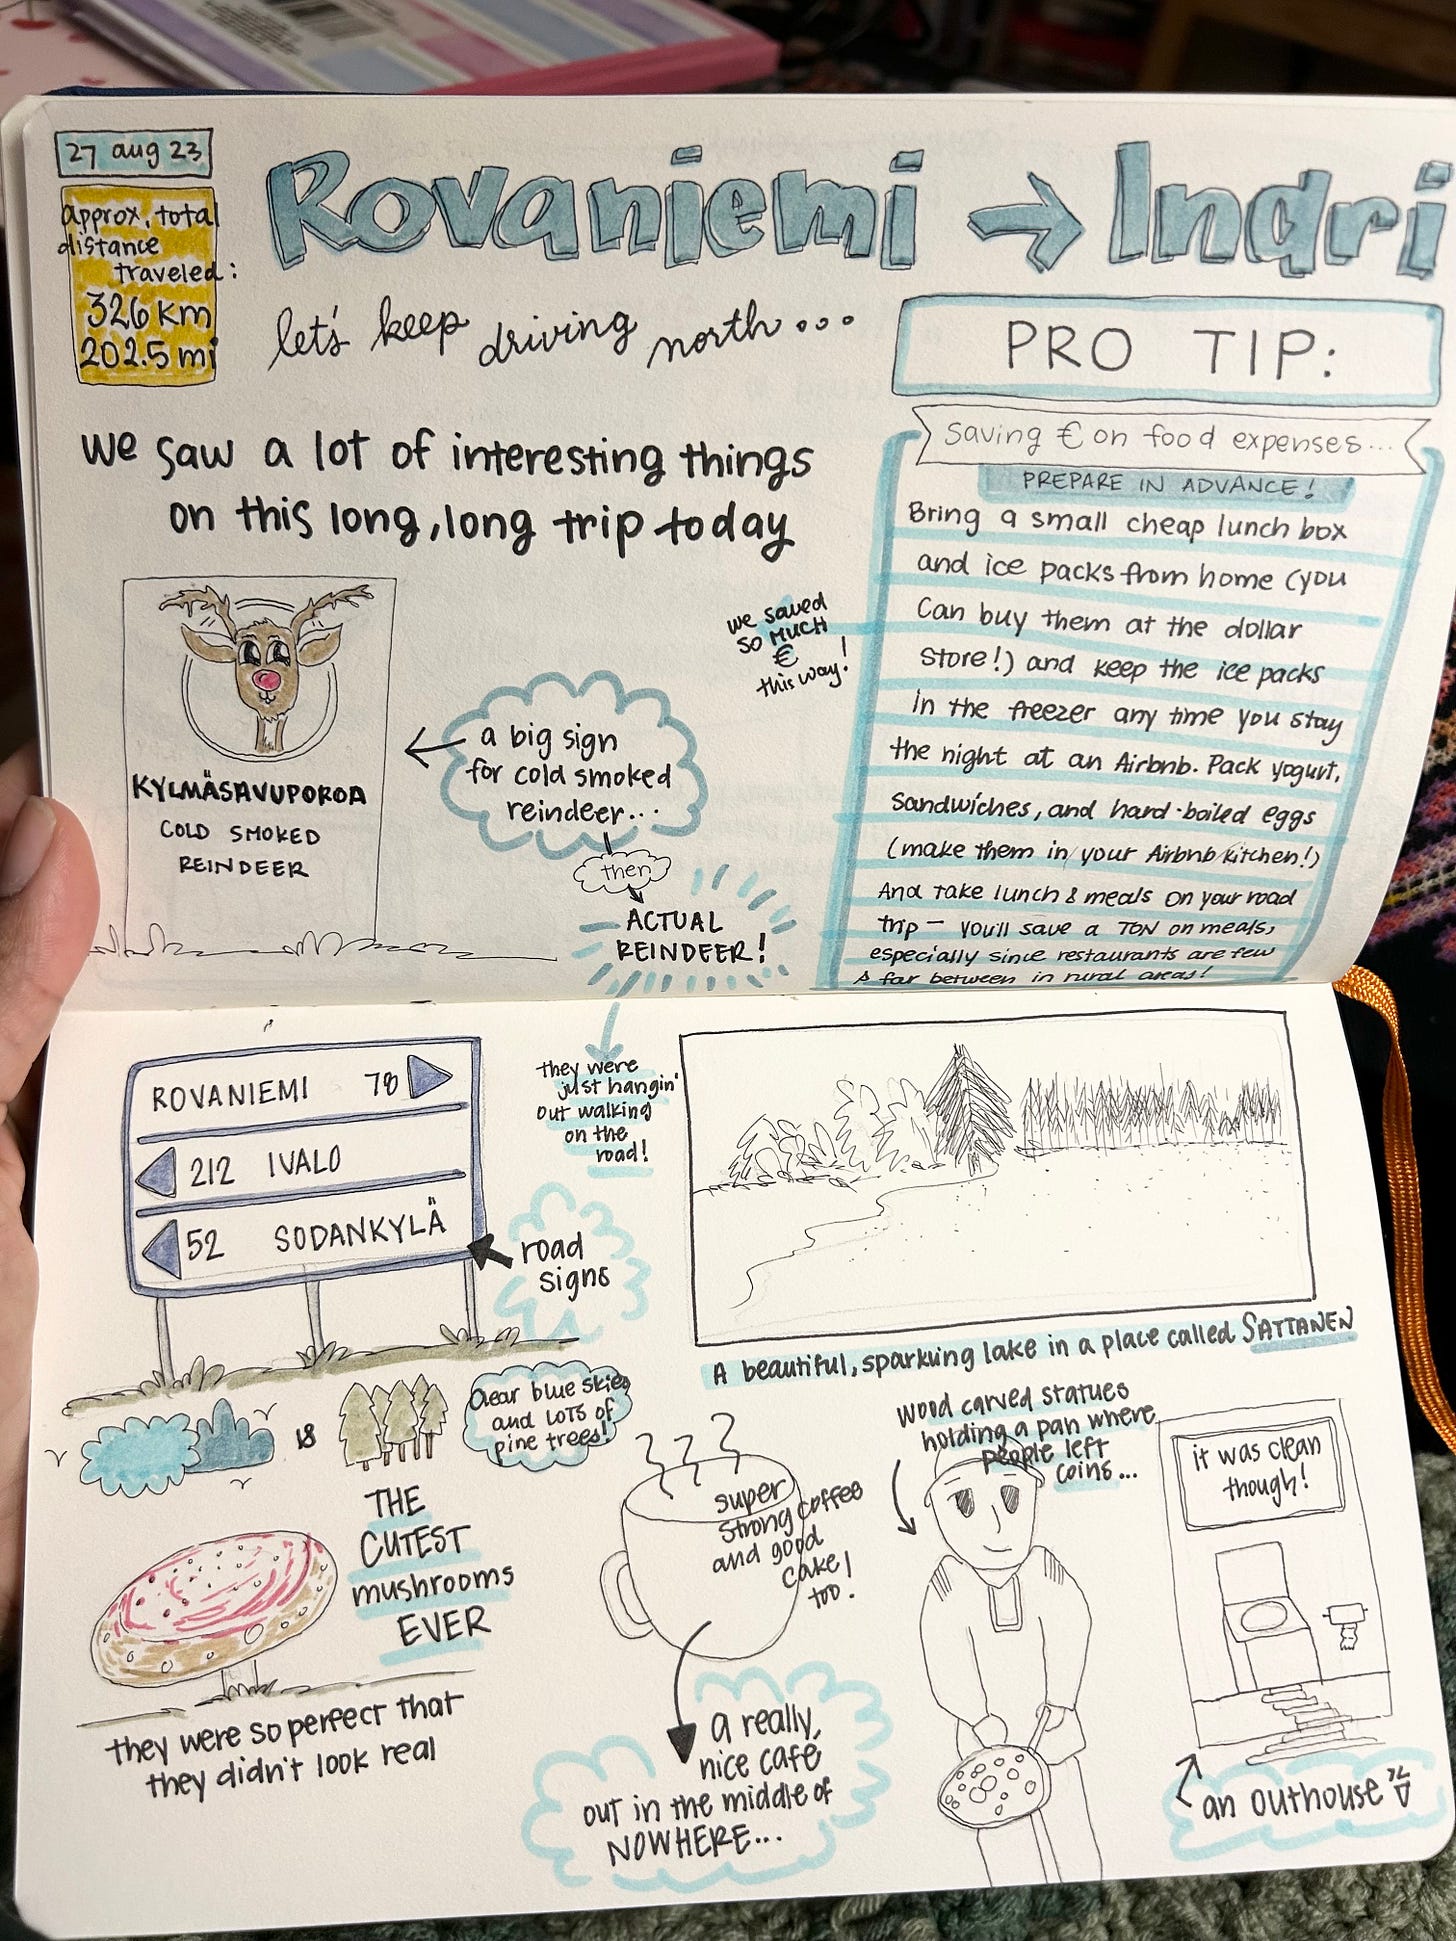 27 aug 23
approx. total
distance
traveled:
326 km
202.5 mi
Rovaniemi → Inari
let's keep driving north...
we saw a lot of interesting things
on this long, long trip today
KYLMÄSAVUPOROA
COLD SMOKED
REINDEER
a big sign
for cold smoked
reindeer...
then
ACTUAL
REINDEER!
we saved
SO MUCH
€
this way!
PRO TIP:
Saving € on food expenses...
PREPARE IN ADVANCE!
Bring a small cheap lunch box
and ice packs from home (you
can buy them at the dollar
store!) and keep the ice packs
in the freezer any time you stay
the night at an Airbnb. Pack yogurt,
sandwiches, and hard-boiled eggs
(make them in your Airbnb kitchen!)
And take lunch & meals on your road
trip — you'll save a TON on meals,
especially since restaurants are few
& far between in rural areas!
ROVANIEMI 78
212 IVALO
52 SODANKYLÄ
road
signs
they were
just hangin'
out walking
on the
road!
A beautiful, sparkling lake in a place called SATTANEN
Clear blue skies
and LOTS of
pine trees!
&
THE
CUTEST
mushrooms
EVER
they were so perfect that
they didn't look real
super
strong coffee
and good
cake!
too!
a really,
nice café
out in the middle of
NOWHERE...
wood carved statues
holding a pan where
people left
coins...
it was clean
though!
an outhouse